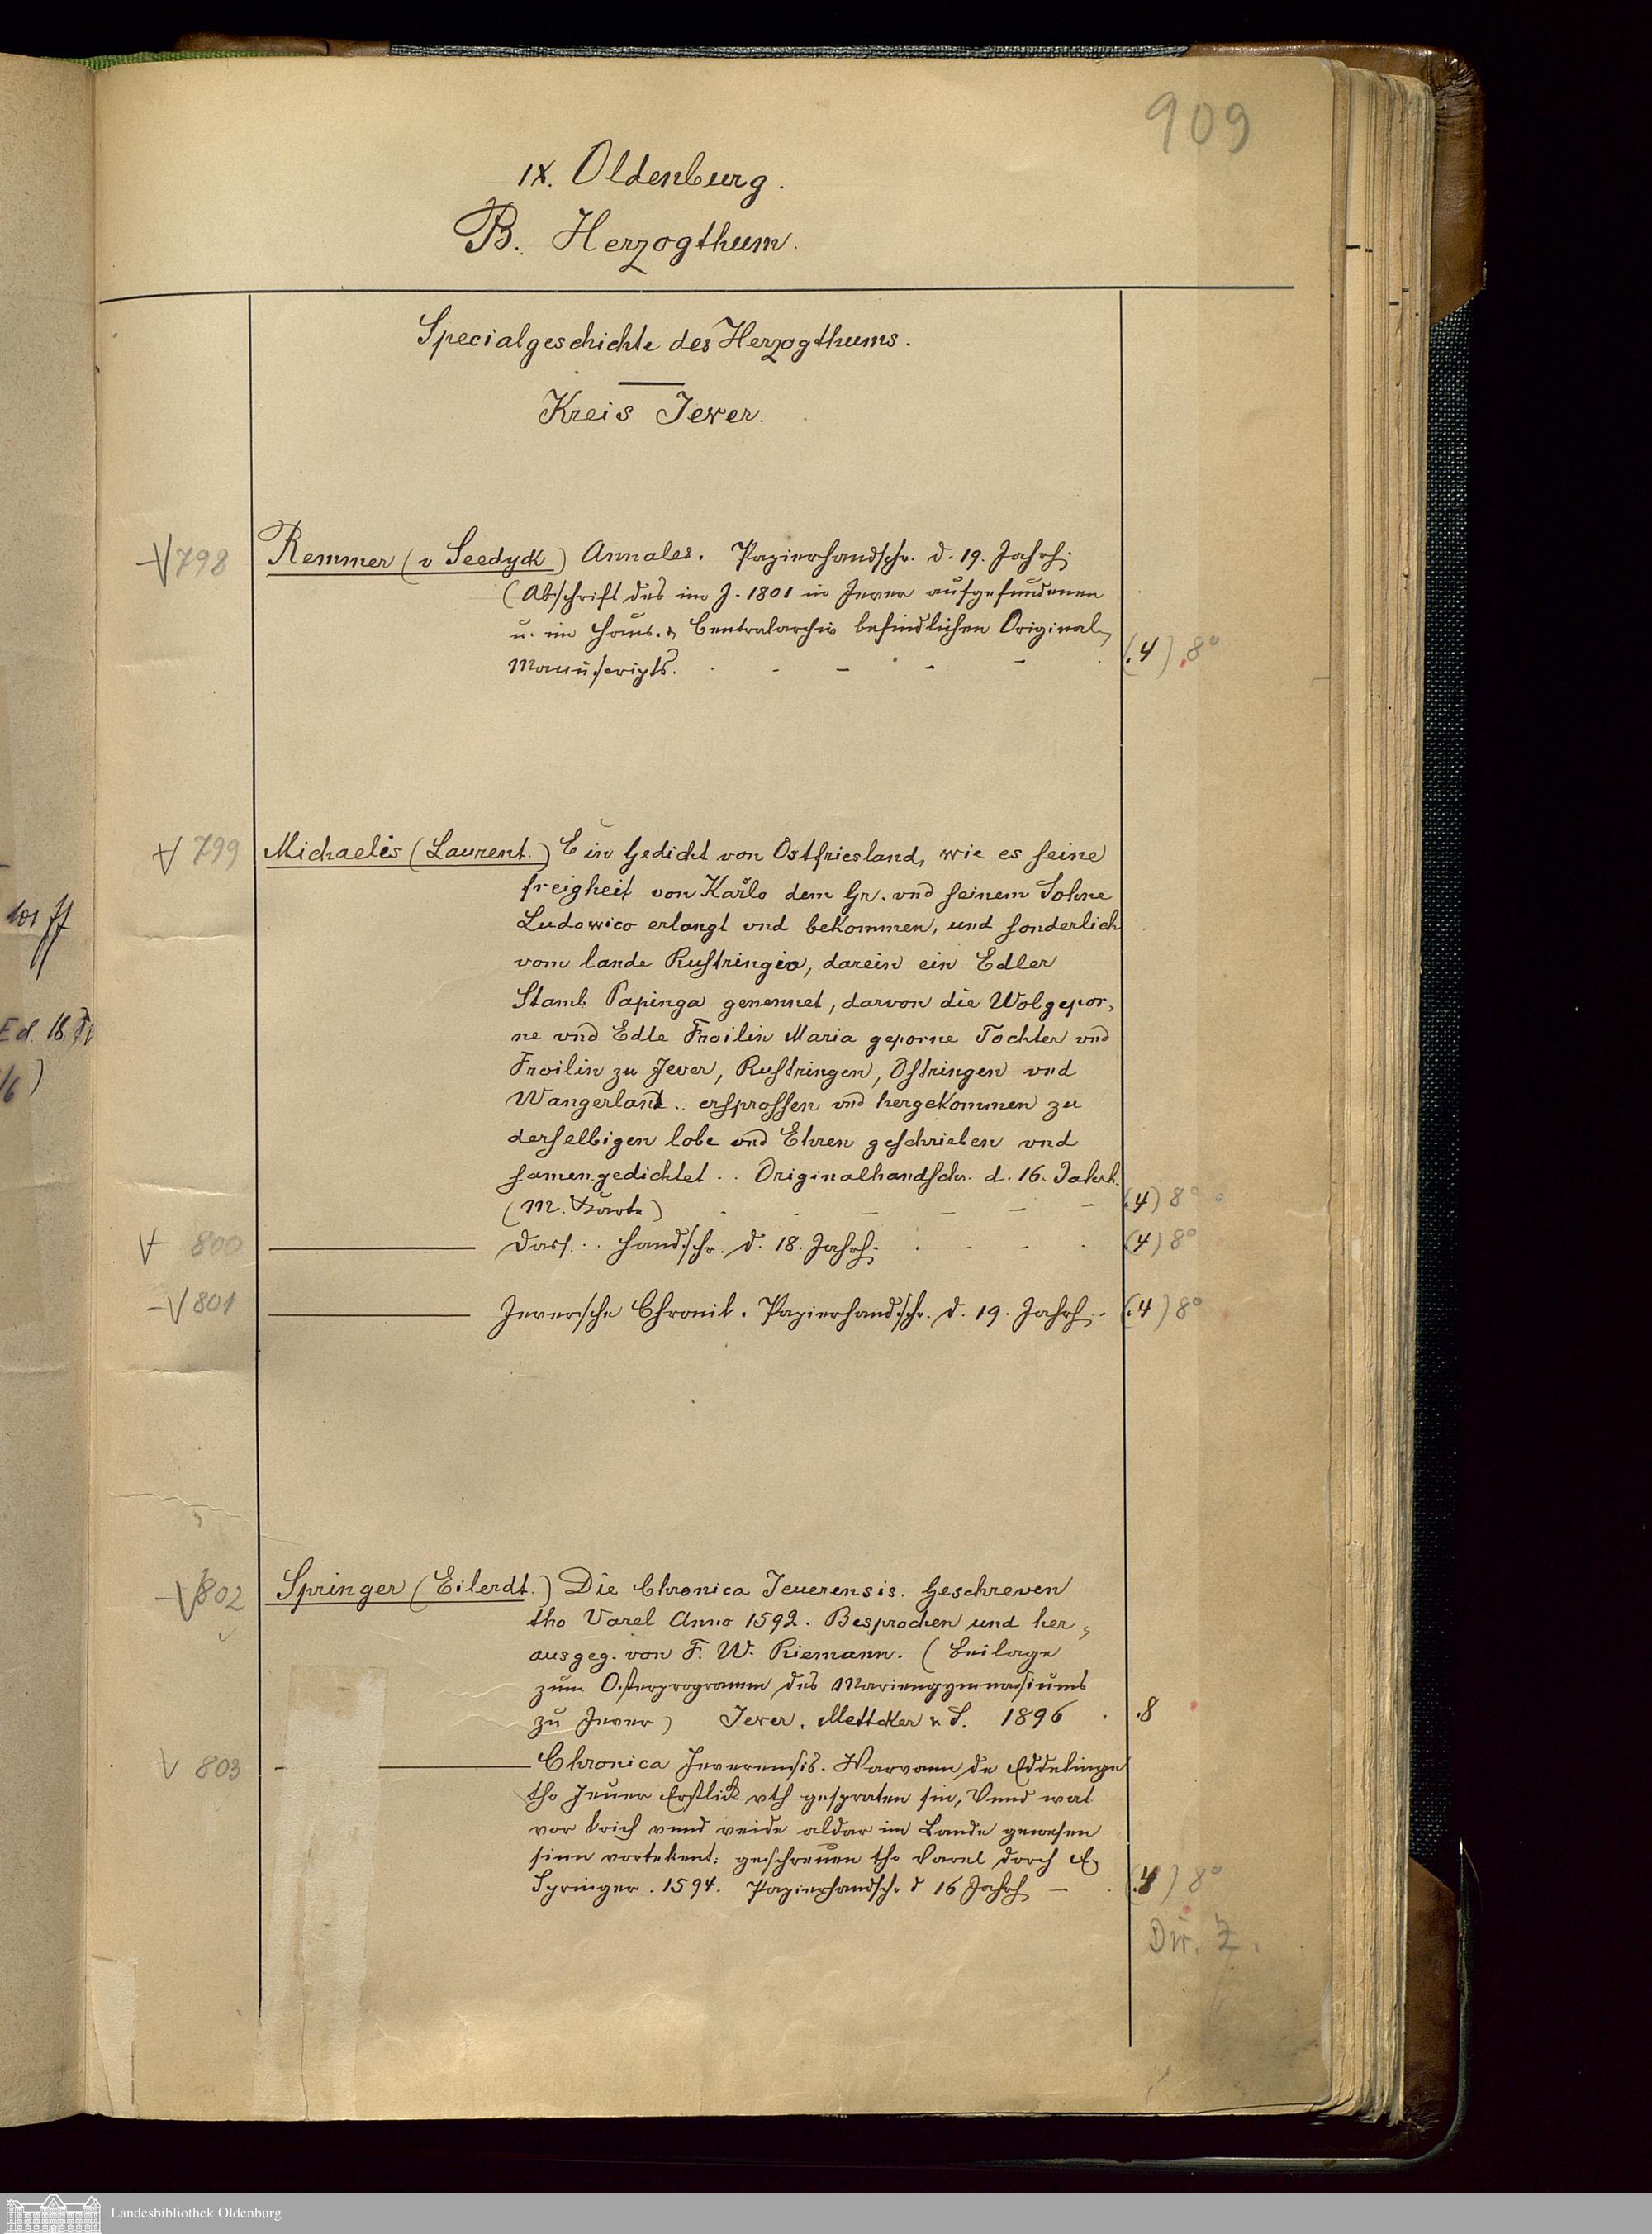 909
IX. Oldenburg.
B. Herzogthum.
Specialgeschichte des Herzogthums.
Kreis Jever.
798 Remmer (v Seedyk) Annales. Papierhandschr. d. 19. Jahrh.
(Abschrift des im J. 1801 in Jever aufgefundenen
u. im Haus- & Centralarchiv befindlichen Original-
Manuscripts. (4) 8°
799 Michaelis (Laurent.) Ein Gedicht von Ostfriesland, wie es seine
freigheit von Karlo dem Gr. vnd seinem Sohne
Ludowico erlangt vnd bekommen, und sonderlich
vom lande Rustringia, darein ein Edler
Stamb Papinga genennet, darvon die Wolgepor-
ne vnd Edle Froilin Maria geporne Tochter vnd
Froilin zu Jever, Rustringen, Ostringen vnd
Wangerland .. ersprossen vnd hergekommen zu
derselbigen lobe vnd Ehren geschrieben vnd
samengedichtet .. Originalhandschr. d. 16. Jahrh.
(M. Karte) (4) 8°
800 Dass. .. Handschr. d. 18. Jahrh. (4) 8°
801 Jeversche Chronik. Papierhandschr. d. 19. Jahrh. (4) 8°
802 Springer (Eilerdt.) Die Chronica Jeuerensis. Geschreven
tho Varel Anno 1592. Besprochen und her-
ausgeg. von F. W. Riemann. (Beilage
zum Osterprogramm des Mariengymnasiums
zu Jever) Jever. Mettcker & S. 1896 8
803 Chronica Jeverensis. Warvann de Eddelinge
tho Jeuer Erstlick vth gespraten sin, Vnnd wat
vor krich vnnd veide aldar im Lande gewesen
sinn vortekent: geschreuen tho Varel dorch E.
Springer. 1594. Papierhandschr. d 16 Jahrh (4) 8°
Dir. Z.
101 ff
Ed. 18
16)
Landesbibliothek Oldenburg